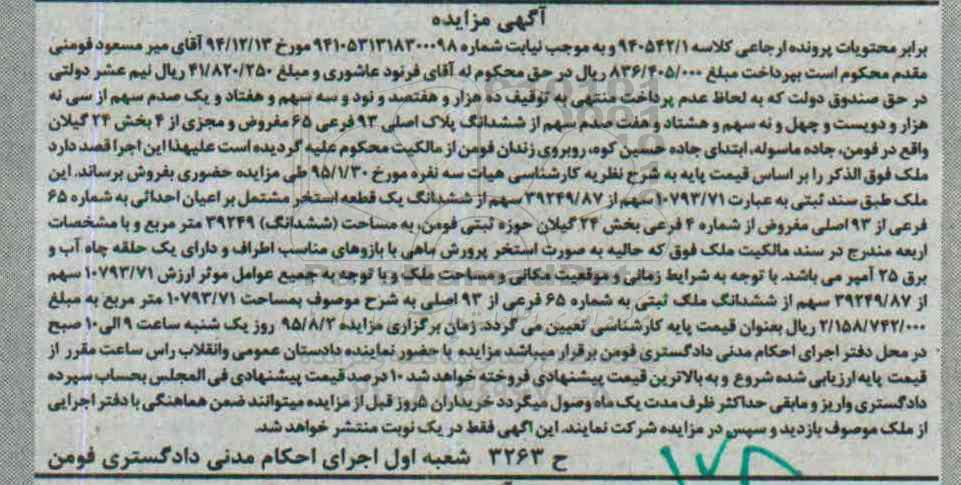 آگهی مزایده
برابر محتویات پرونده ارجاعی کلاسه ۹۴۰۵۴۲/۱ و به موجب نیابت شماره ۹۴۱۰۵۳۱۳۱۸۳۰۰۰۹۸ مورخ ۹۴/۱۲/۱۳ آقای میر مسعود فومنی
مقدم محکوم است بپرداخت مبلغ ۸۳۶/۴۰۵/۰۰۰ ریال در حق محکوم له آقای فرنود عاشوری و مبلغ ۴۱/۸۲۰/۲۵۰ ریال نیم عشر دولتی
در حق صندوق دولت که به لحاظ عدم پرداخت منتهی به توقیف ده هزار و هفتصد و نود و سه سهم و هفتاد و یک صدم سهم از سی نه
هزار و دویست و چهل و نه سهم و هشتاد و هفت صدم سهم از ششدانگ پلاک اصلی ۹۳ فرعی ۶۵ مفروض و مجزی از ۴ بخش ۲۴ گیلان
واقع در فومن، جاده ماسوله، ابتدای جاده حسین کوه، روبروی زندان فومن از مالکیت محکوم علیه گردیده است علیهذا این اجرا قصد دارد
ملک فوق الذکر را بر اساس قیمت پایه به شرح نظریه کارشناسی هیات سه نفره مورخ ۹۵/۱/۳۰ طی مزایده حضوری بفروش برساند. این
ملک طبق سند ثبتی به عبارت ۱۰۷۹۳/۷۱ سهم از ۳۹۲۴۹/۸۷ سهم از ششدانگ یک قطعه استخر مشتمل بر اعیان احداثی به شماره ۶۵
فرعی از ۹۳ اصلی مفروض از شماره ۴ فرعی بخش ۲۴ گیلان حوزه ثبتی فومن، به مساحت (ششدانگ) ۳۹۲۴۹ متر مربع و با مشخصات
اربعه مندرج در سند مالکیت ملک فوق که حالیه به صورت استخر پرورش ماهی با بازوهای مناسب اطراف و دارای یک حلقه چاه آب و
برق ۲۵ آمپر می باشد. با توجه به شرایط زمانی و موقعیت مکانی و مساحت ملک و با توجه به جمیع عوامل موثر ارزش ۱۰۷۹۳/۷۱ سهم
از ۳۹۲۴۹/۸۷ سهم از ششدانگ ملک ثبتی به شماره ۶۵ فرعی از ۹۳ اصلی به شرح موصوف بمساحت ۱۰۷۹۳/۷۱ متر مربع به مبلغ
۲/۱۵۸/۷۴۲/۰۰۰ ریال بعنوان قیمت پایه کارشناسی تعیین می گردد. زمان برگزاری مزایده ۹۵/۸/۲ روز یک شنبه ساعت ۹ الی ۱۰ صبح
در محل دفتر اجرای احکام مدنی دادگستری فومن برقرار میباشد مزایده با حضور نماینده دادستان عمومی وانقلاب راس ساعت مقرر از
قیمت پایه ارزیابی شده شروع و به بالاترین قیمت پیشنهادی فروخته خواهد شد ۱۰ درصد قیمت پیشنهادی فی المجلس بحساب سپرده
دادگستری واریز و مابقی حداکثر ظرف مدت یک ماه وصول میگردد خریداران ۵روز قبل از مزایده میتوانند ضمن هماهنگی با دفتر اجرایی
از ملک موصوف بازدید و سپس در مزایده شرکت نمایند. این اگهی فقط در یک نوبت منتشر خواهد شد.
ح ۳۲۶۳ شعبه اول اجرای احکام مدنی دادگستری فومن